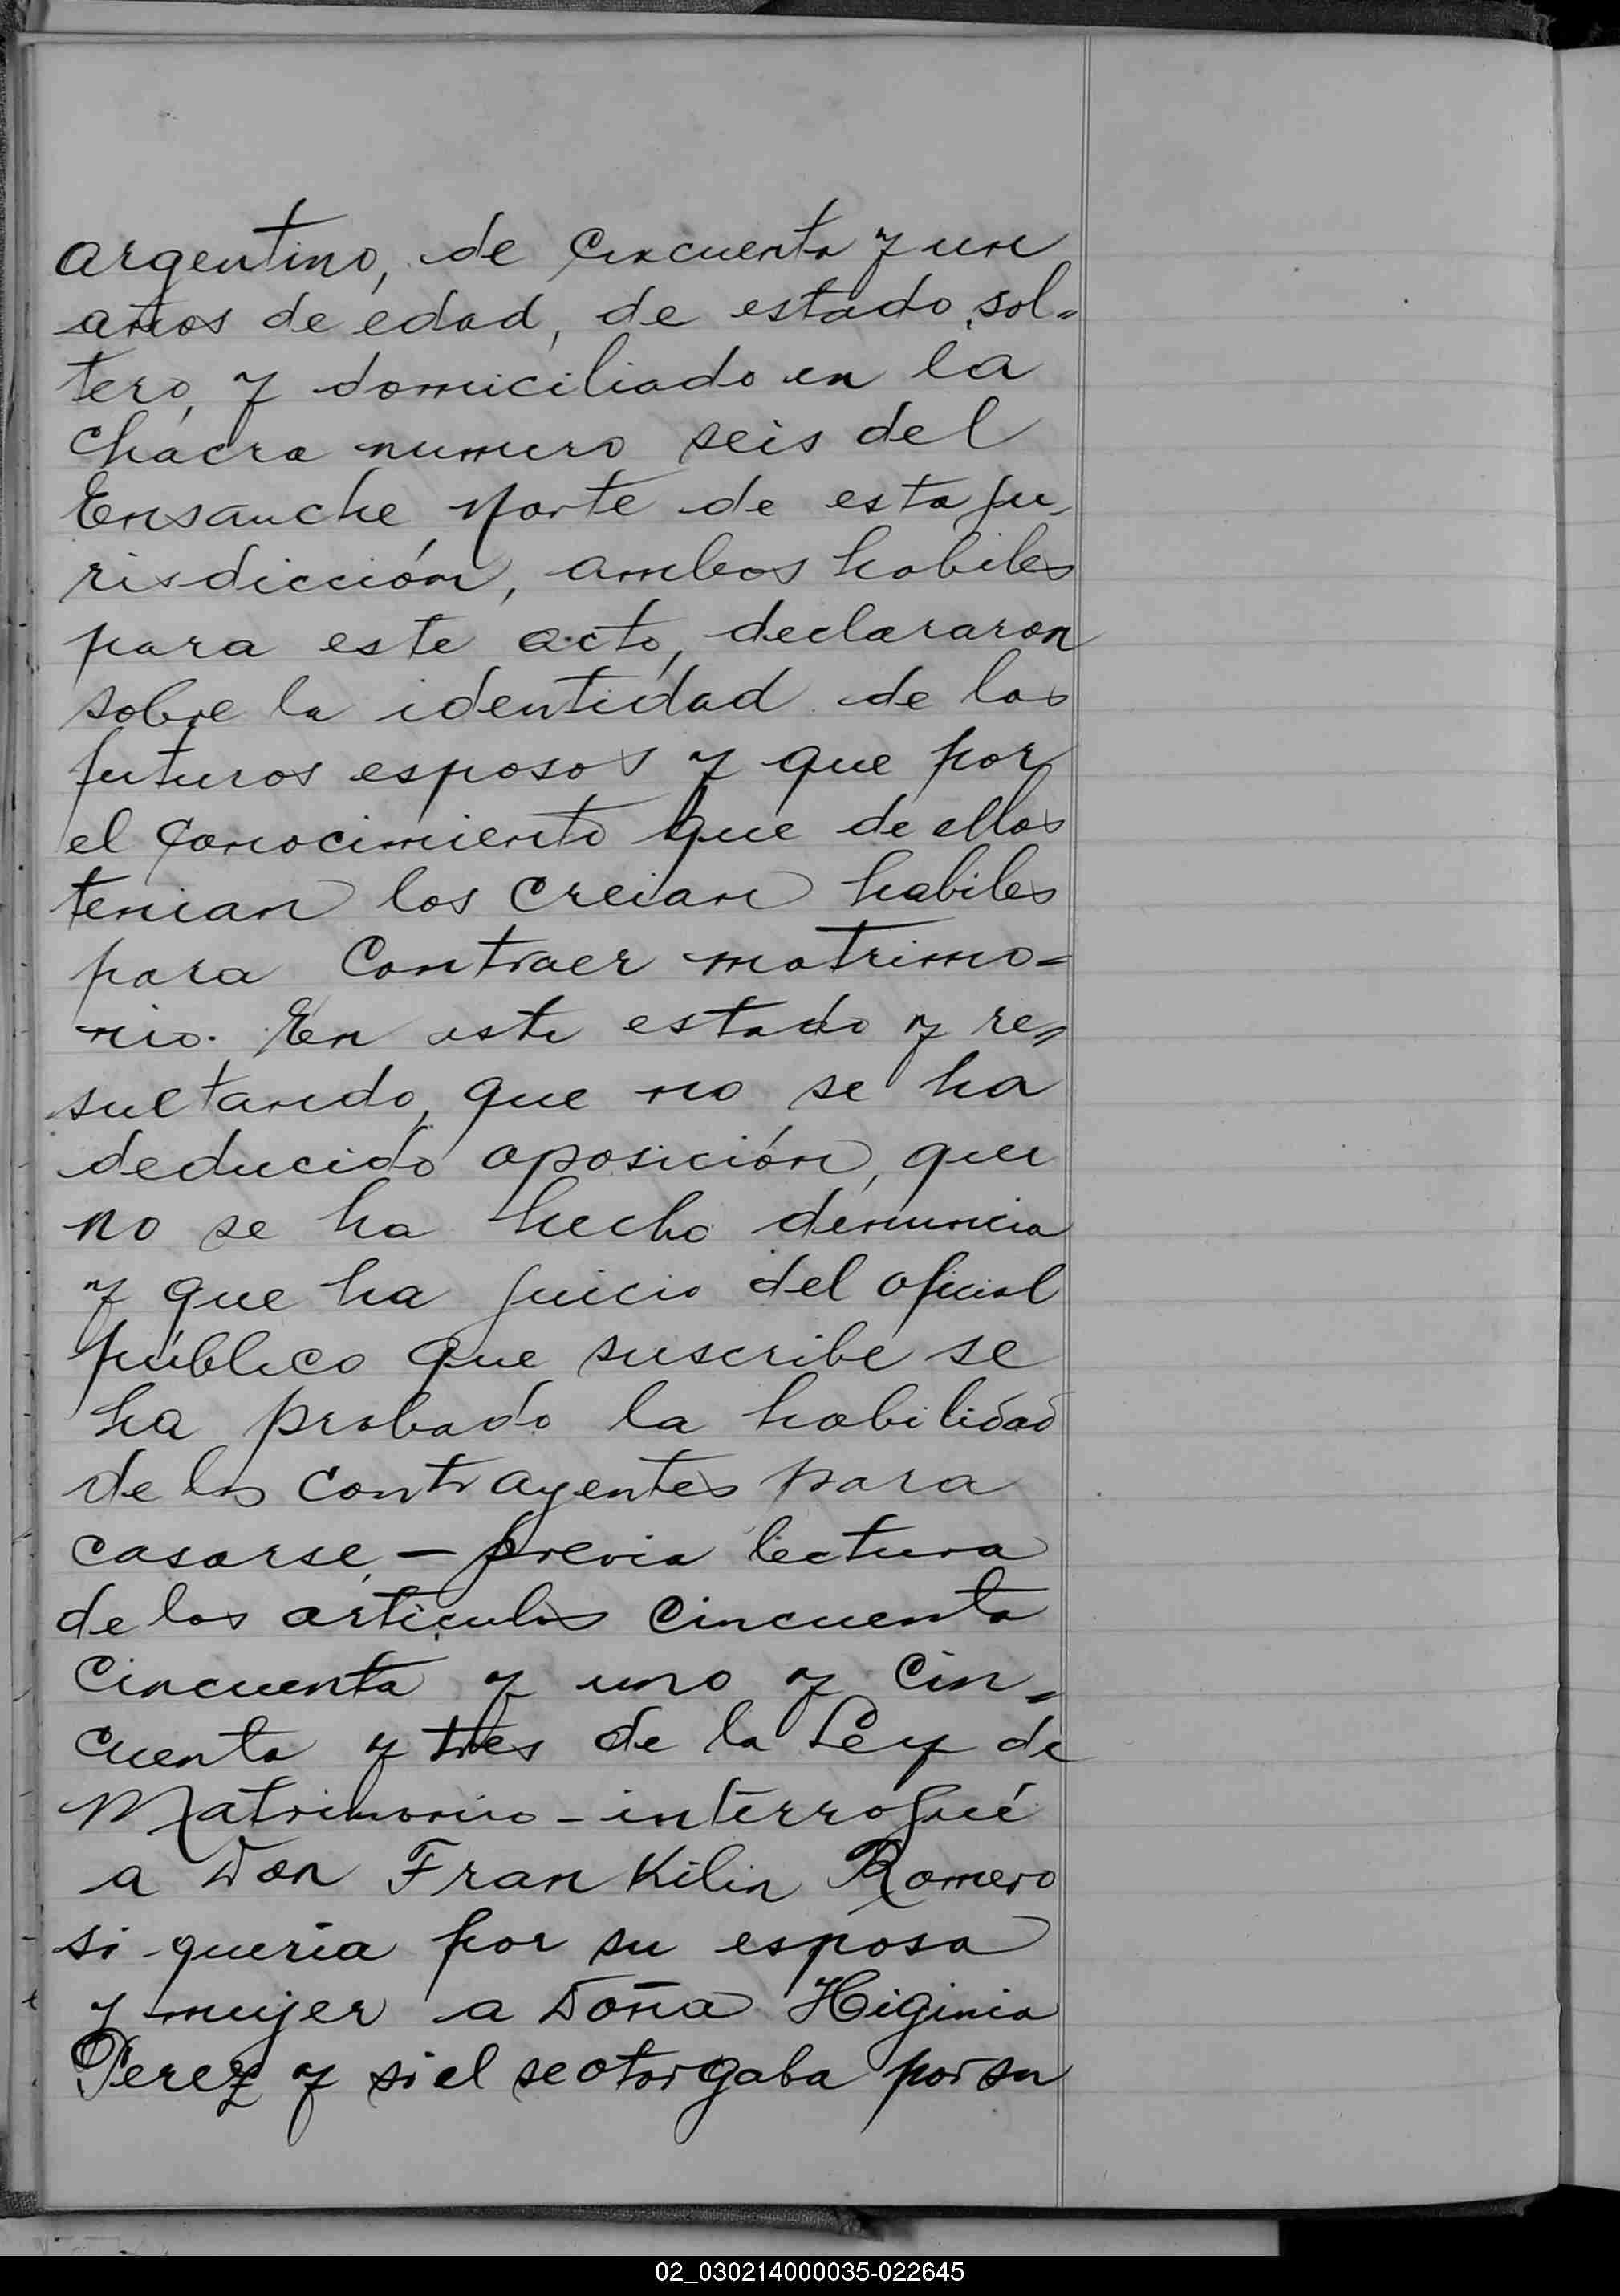 argentino, de cincuenta y un
años de edad, de estado sol=
tero, y domiciliado en la
chacra numero seis del
Ensanche Norte de esta ju-
risdicción, ambos habiles
para este acto, declararon
sobre la identidad de los
futuros esposos y que por
el conocimiento que de ellos
tenian los creian habiles
para contraer matrimo=
nio. En este estado y re=
sultando, que no se ha
deducido oposición, que
no se ha hecho denuncia
y que ha juicio del oficial
público que suscribe se
ha probado la habilidad
de los contrayentes para
casarse, - previa lectura
de los articulos cincuenta
cincuenta y uno y cin=
cuenta y tres de la Ley de
Matrimonio - interrogué
a Don Frankilin Romero
si queria por su esposa
y mujer a Doña Higinia
Perez y si el se otorgaba por su
02_030214000035-022645